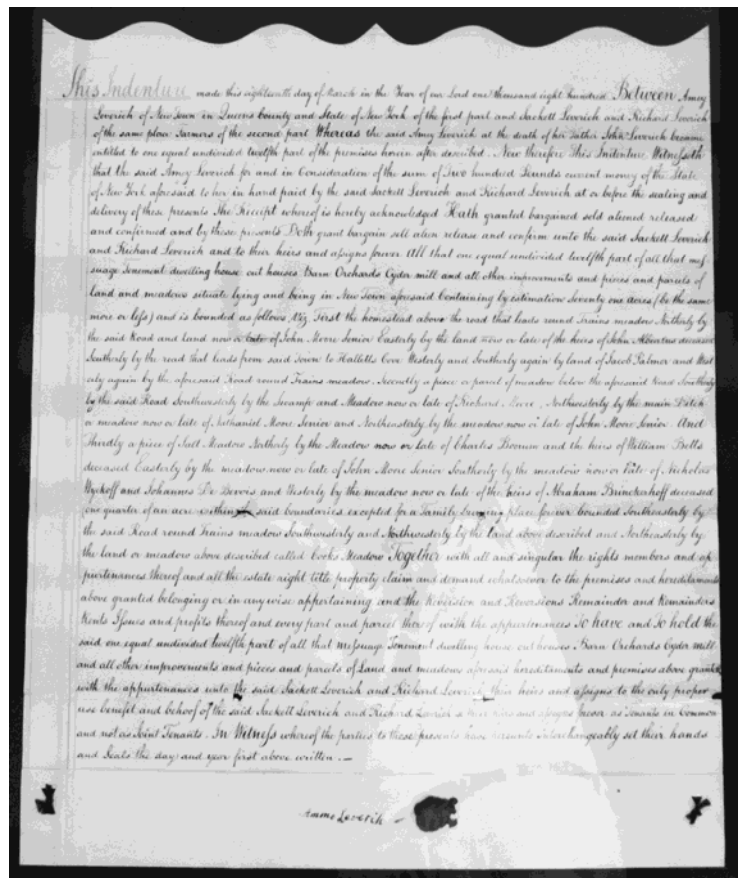 This Indenture made this eighteenth day of March in the Year of our Lord one thousand eight hundred Between Amey
Leverich of New Town in Queens County and State of New York of the first part and Sackett Leverich and Richard Leverich
of the same place Farmers of the second part Whereas the said Amey Leverich at the death of her Father John Leverich became
entitled to one equal undivided twelfth part of the premises herein after described. Now therefore this Indenture Witnesseth
that the said Amey Leverich for and in Consideration of the sum of Two hundred Pounds current money of the State
of New York aforesaid to her in hand paid by the said Sackett Leverich and Richard Leverich at or before the sealing and
delivery of these presents The Receipt whereof is hereby acknowledged Hath granted bargained sold aliened released
and confirmed and by these presents Doth grant bargain sell alien release and confirm unto the said Sackett Leverich
and Richard Leverich and to their heirs and assigns forever All that one equal undivided twelfth part of all that mes
suage Tenement dwelling house out houses Barn Orchards Cyder mill and all other improvements and pieces and parcels of
land and meadows situate lying and being in New Town aforesaid Containing by estimation Seventy one acres (be the same
more or less) and is bounded as follows, Viz. First the homestead above the road that leads round Trains meadow Northerly by
the said Road and land now or late of John Moore Senior Easterly by the land now or late of the heirs of John deceased
Southerly by the road that leads from said Town to Halletts Cove Westerly and Southerly again by land of Jacob Palmer and West
erly again by the aforesaid Road round Trains meadow. Secondly a piece or parcel of meadow below the aforesaid Road Southerly
by the said Road Southwesterly by the Swamp and Meadow now or late of Richard Northwesterly by the main Ditch
or meadow now or late of Nathaniel Moore Senior and Northeasterly by the meadow now or late of John Moore Senior. And
Thirdly a piece of Salt Meadow Northerly by the Meadow now or late of Charles Boorum and the heirs of William Betts
deceased Easterly by the meadow now or late of John Moore Senior Southerly by the meadow now or late of Nicholas
Wyckoff and Johannes De Bevois and Westerly by the meadow now or late of the heirs of Abraham Brinckerhoff deceased
one quarter of an acre within said boundaries excepted for a Family burying place forever bounded Southeasterly by
the said Road round Trains meadow Southwesterly and Northwesterly by the land above described and Northeasterly by
the land or meadow above described called Cooks Meadow Together with all and singular the rights members and ap
purtenances thereof and all the estate right title property claim and demand whatsoever to the premises and hereditaments
above granted belonging or in any wise appertaining and the Reversion and Reversions Remainder and Remainders
Rents Issues and profits thereof and every part and parcel thereof with the appurtenances To have and To hold the
said one equal undivided twelfth part of all that messuage Tenement dwelling house out houses Barn Orchards Cyder mill
and all other improvements and pieces and parcels of Land and meadows aforesaid hereditaments and premises above granted
with the appurtenances unto the said Sackett Leverich and Richard Leverich their heirs and assigns to the only proper
use benefit and behoof of the said Sackett Leverich and Richard Leverich their heirs and assigns forever as Tenants in Common
and not as Joint Tenants. In Witness whereof the parties to these presents have hereunto interchangeably set their hands
and Seals the day and year first above written.—
Amme Leverich